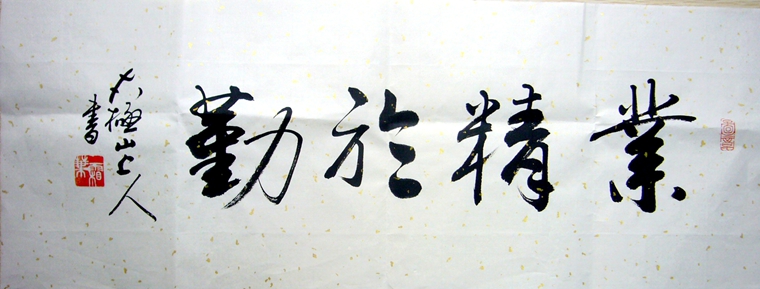 業精於勤
太極山上人
書